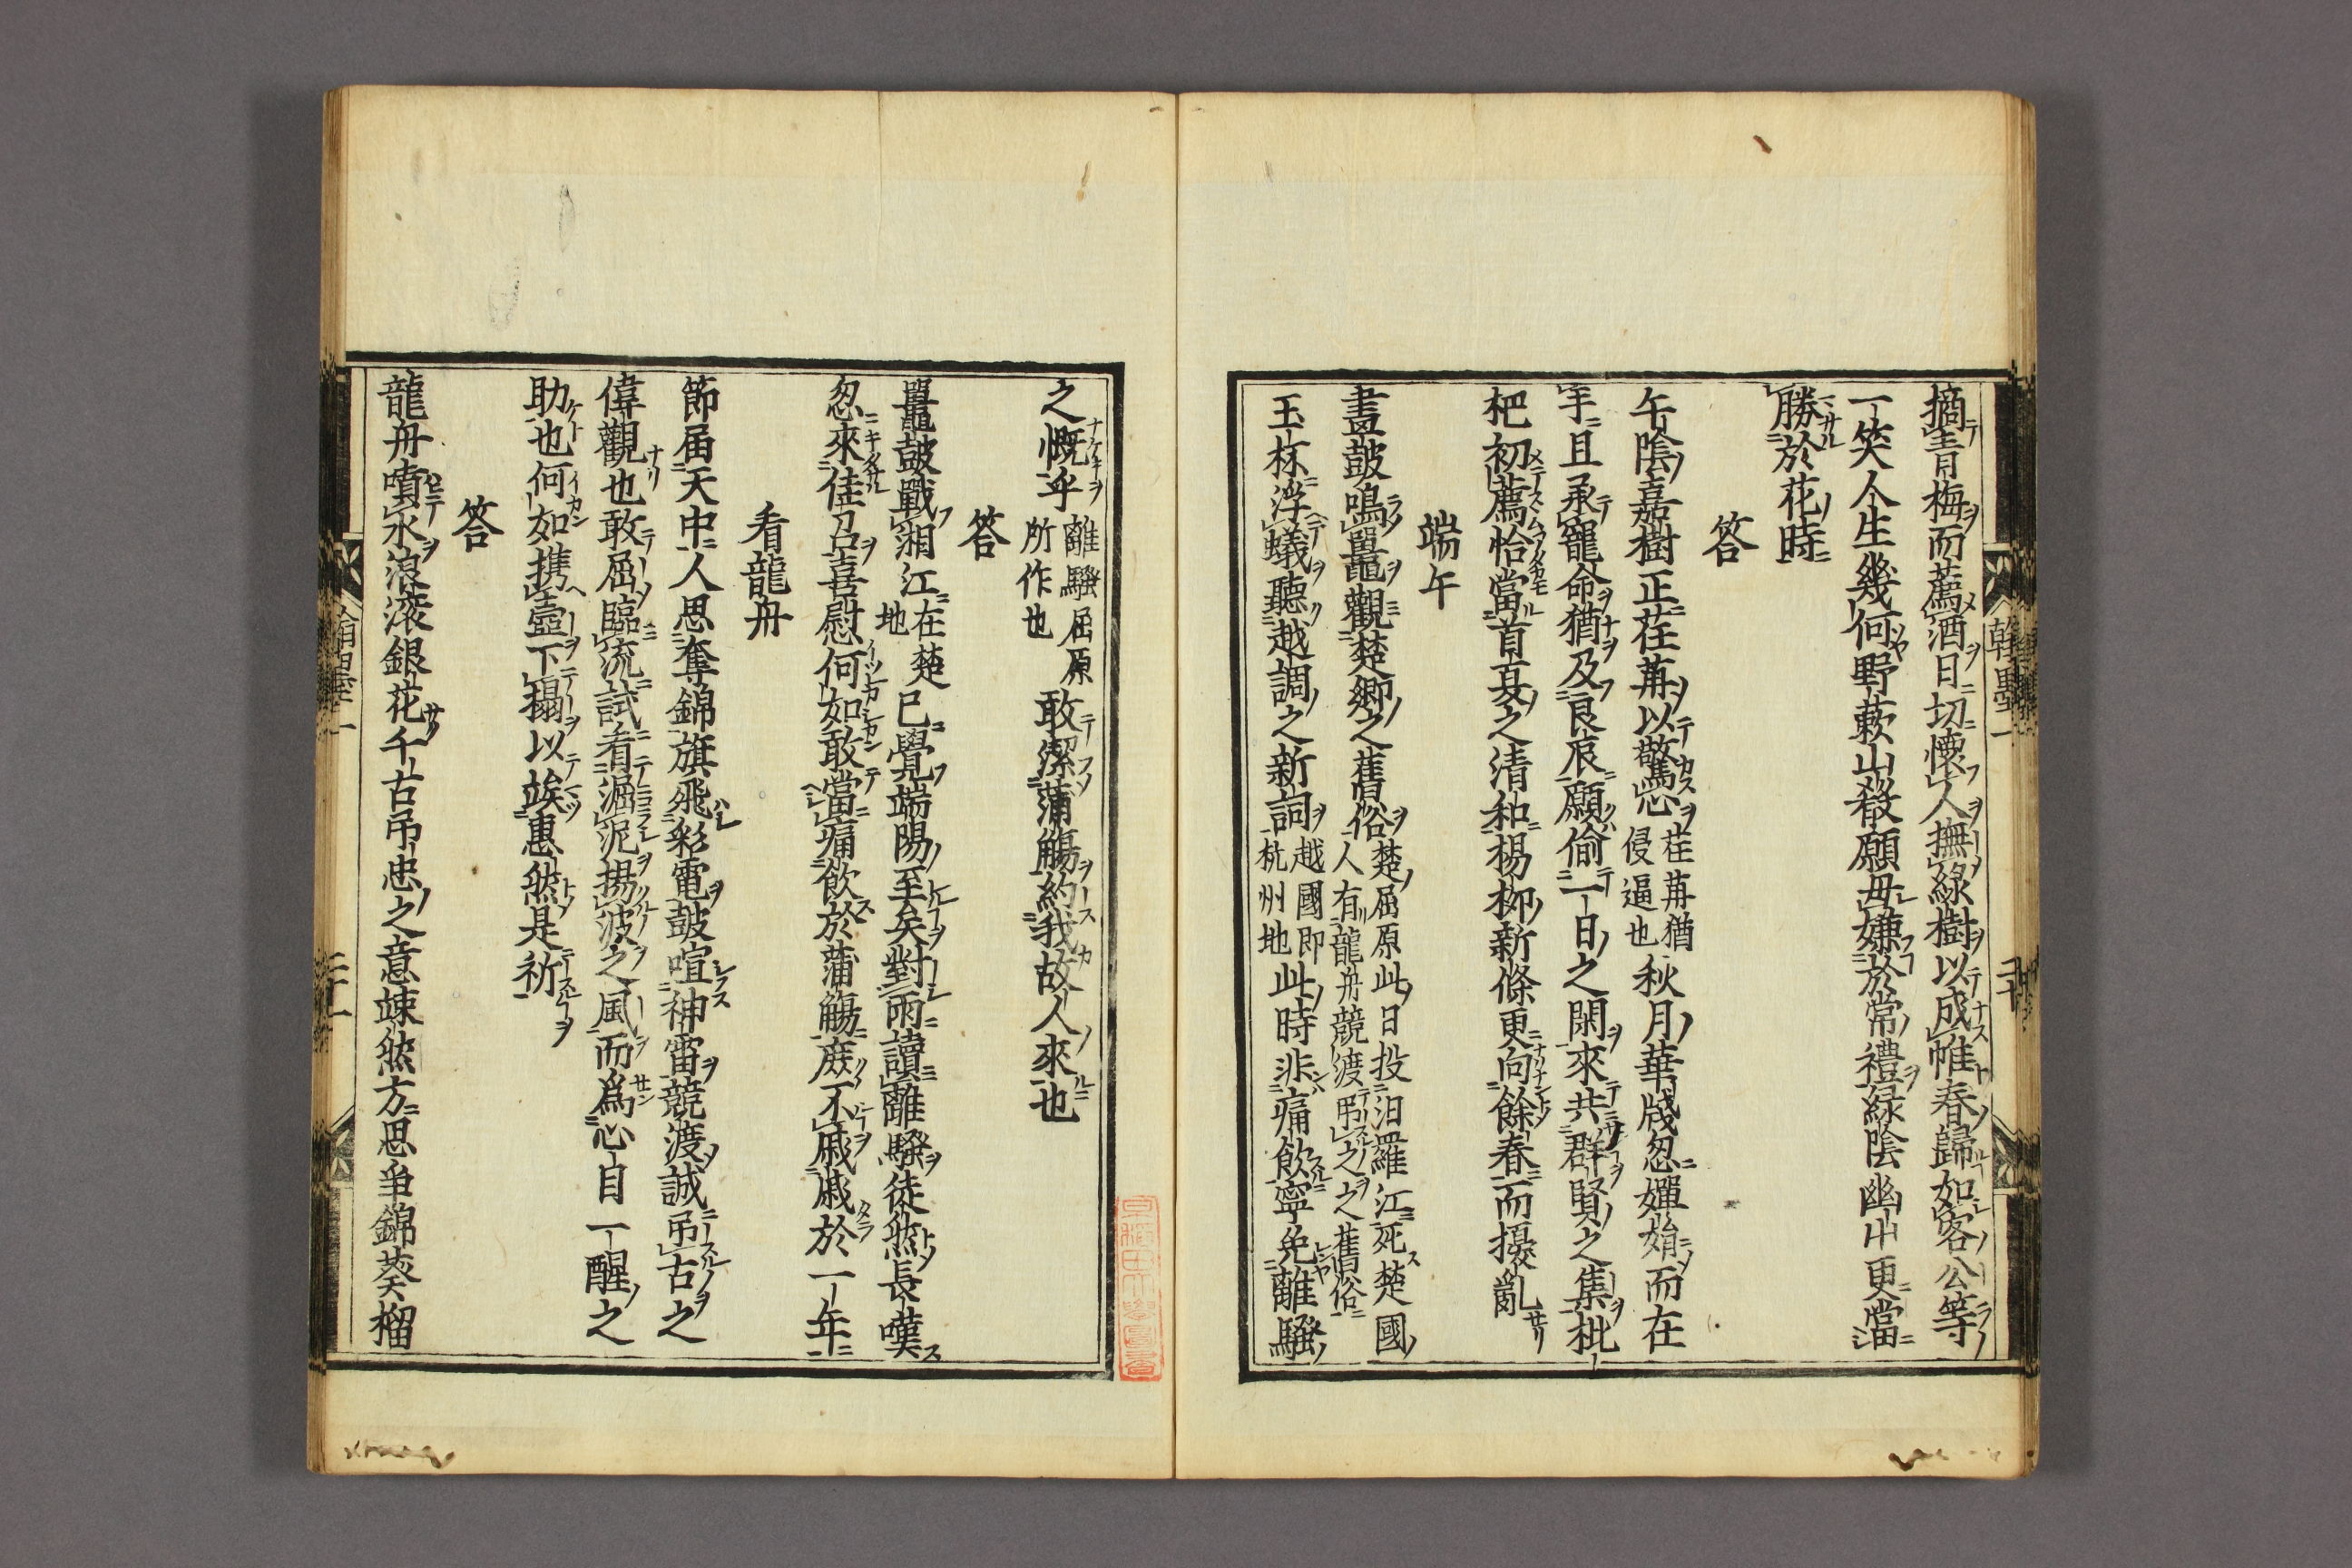 摘青梅而薦酒日切懷人撫綠樹以成帷春歸如客公等
一笑人生幾何野蔌山殽願毋嫌於常禮緑陰幽中更當
勝於花時
答
午陰嘉樹正荏苒以驚心荏苒猶侵逼也秋月華牋忽嬋娟而在
手且承寵命猶及良辰願偷一日之閑來共群賢之集枇
杷初薦恰當首夏之清和楊柳新條更向餘春而擾亂
端午
畫鼓鳴鼉觀楚鄉之舊俗楚屈原此日投汨羅江死楚國人有龍舟競渡吊之之舊俗
玉杯浮蟻聽越調之新詞越國即杭州地此時非痛飲寧免離騷
之慨乎離騷屈原所作也敢潔蒲觴約我故人來也
答
鼉鼓戰湘江在楚地已覺端陽至矣對雨讀離騷徒然長嘆
忽來佳召喜慰何如敢當痛飲於蒲觴庶不戚戚於一年
看龍舟
節届天中人思奪錦旗飛彩電鼓喧神雷競渡誠吊古之
偉觀也敢屈臨流試看淈泥揚波之風而爲心目一醒之
助也何如携壺下榻以竢惠然是祈
答
龍舟噴水浪滚銀花千古吊忠之意竦然方思爭錦葵榴
翰墨一
二十
二十一